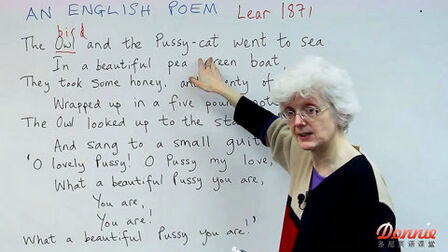 AN ENGLISH POEM Lear 1871
bird
The Owl and the Pussy-cat went to sea
In a beautiful pea green boat,
They took some honey, and plenty of
Wrapped up in a five pound
The Owl looked up to the
And sang to a small guitar
'O lovely Pussy! O Pussy my love,
What a beautiful Pussy you are,
You are,
You are!
What a beautiful Pussy you are!'
Donnie
多尼英语课堂